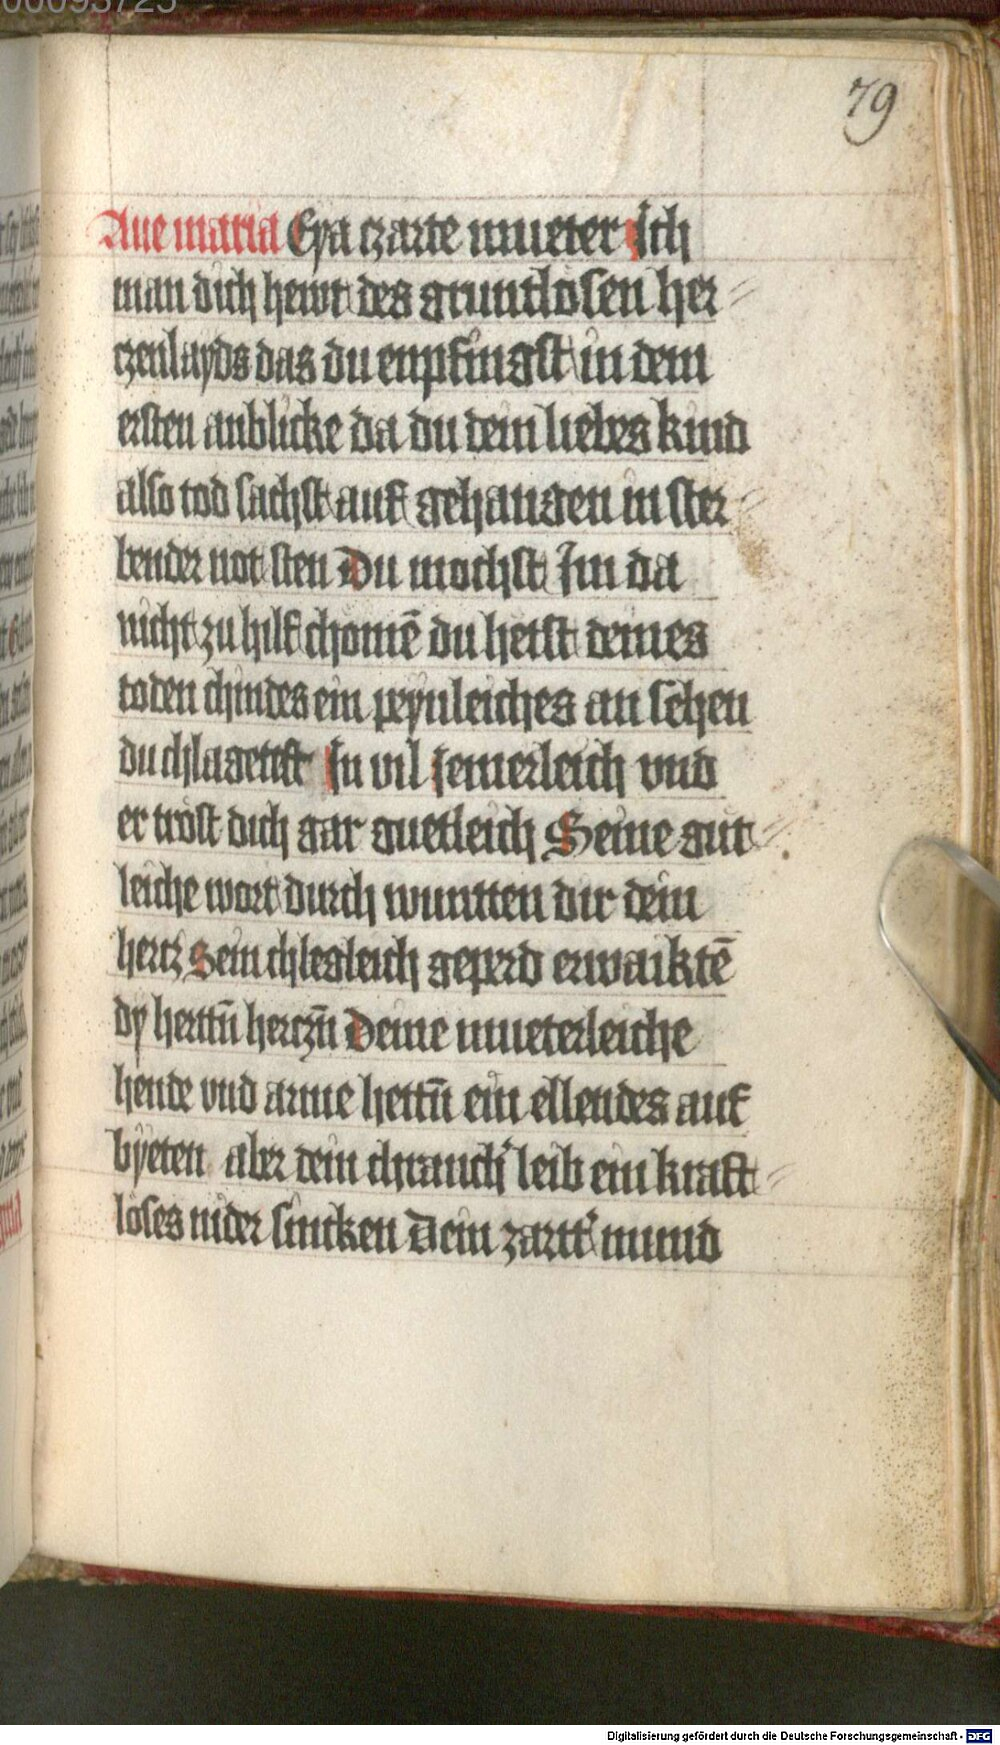 79
Aue maria Eya czarte mueter Ich
man dich hewt des gruntlosen her=
czenlayds das du enpfingst in dem
ersten anblicke da du dein liebes kind
also tod sachst auf gehangen in ster=
bender not sten Du mochst Im da
nicht zu hilf chomē du hetst deines
toden chindes ein peynleiches an sehen
du chlagetist In vil iemerleich vnd
er trost dich gar guetleich Seine gut=
leiche wort durch wuntten dir dein
hercz Sein chlegleich geperd erwaiktē
dy herttn̄ herczn̄ Deine mueterleiche
hende vnd arme hettn̄ ein ellendes auf
byeten aber dein chranch' leib ein kraft=
loses nider sincken Dein zartt' mund
Digitalisierung gefördert durch die Deutsche Forschungsgemeinschaft - DFG